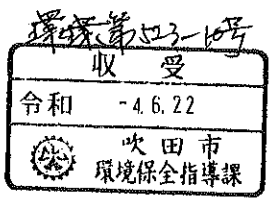 第523-16号
収受
令和 -4.6.22
吹田市
環境保全指導課